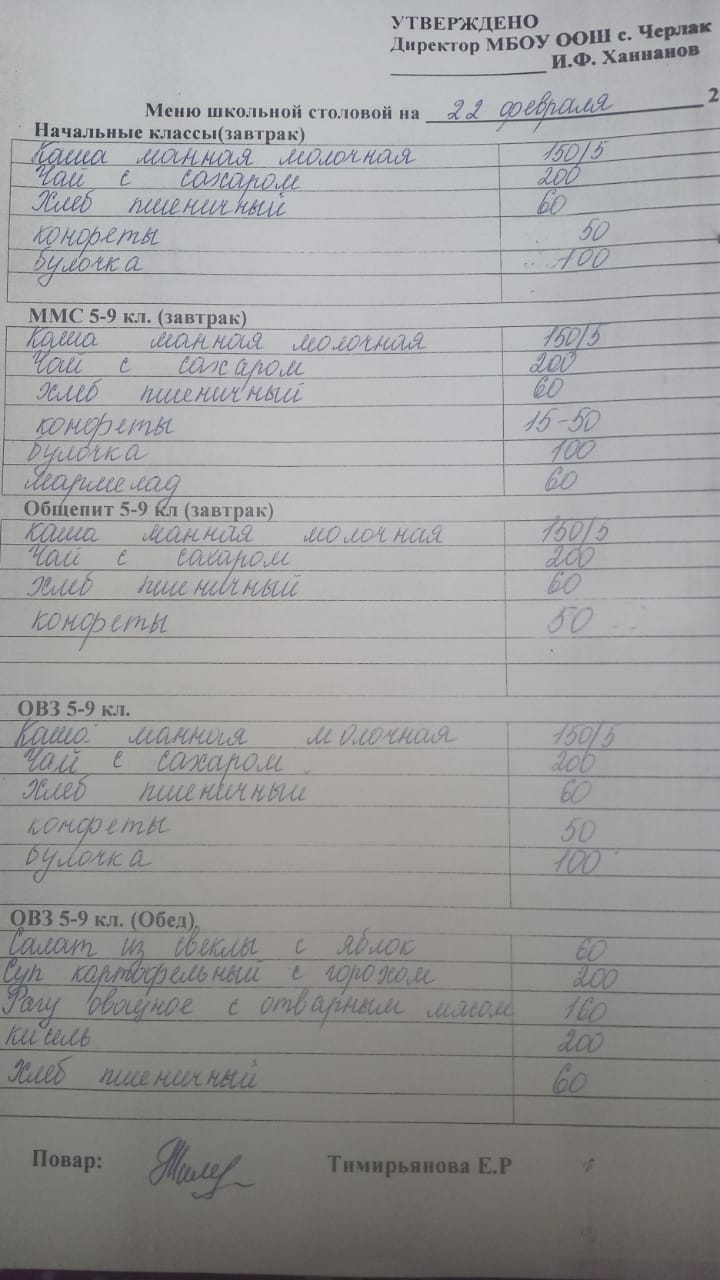 УТВЕРЖДЕНО
Директор МБОУ ООШ с. Черлак
И.Ф. Ханнанов
Меню школьной столовой на 22 февраля 2
Начальные классы(завтрак)
Каша манная молочная 150/5
Чай с сахаром 200
Хлеб пшеничный 60
конфеты 50
булочка 100
ММС 5-9 кл. (завтрак)
Каша манная молочная 150/5
Чай с сахаром 200
Хлеб пшеничный 60
конфеты 15-50
булочка 100
мармелад 60
Общепит 5-9 кл (завтрак)
Каша манная молочная 150/5
Чай с сахаром 200
Хлеб пшеничный 60
конфеты 50
ОВЗ 5-9 кл.
Каша манная молочная 150/5
Чай с сахаром 200
Хлеб пшеничный 60
конфеты 50
булочка 100
ОВЗ 5-9 кл. (Обед)
Салат из свеклы с яблок 60
Суп картофельный с горохом 200
Рагу овощное с отварным мясом 160
кисель 200
Хлеб пшеничный 60
Повар: Тимирьянова Е.Р